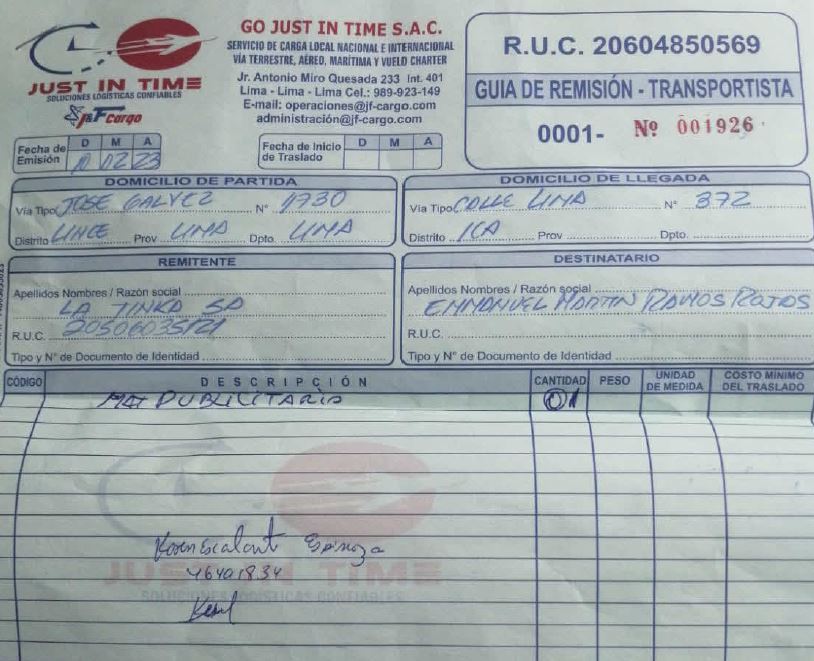 GO JUST IN TIME S.A.C.
SERVICIO DE CARGA LOCAL NACIONAL E INTERNACIONAL
VÍA TERRESTRE, AÉREO, MARÍTIMA Y VUELO CHARTER
Jr. Antonio Miro Quesada 233 Int. 401
Lima - Lima - Lima Cel.: 989-923-149
E-mail: operaciones@jf-cargo.com
administración@jf-cargo.com
JUST IN TIME
SOLUCIONES LOGÍSTICAS CONFIABLES
J&F Cargo
R.U.C. 20604850569
GUIA DE REMISIÓN - TRANSPORTISTA
0001- Nº 001926
Fecha de Emisión D M A
10 02 23
Fecha de Inicio de Traslado D M A
DOMICILIO DE PARTIDA
Vía Tipo JOSE GALVEZ Nº 1730
Distrito LINCE Prov LIMA Dpto. LIMA
DOMICILIO DE LLEGADA
Vía Tipo CALLE LIMA Nº 372
Distrito ICA Prov Dpto.
REMITENTE
Apellidos Nombres / Razón social
LA TINKA SA
R.U.C. 20506035121
Tipo y N° de Documento de Identidad
DESTINATARIO
Apellidos Nombres / Razón social
EMMANUEL MARTIN RAMOS ROJAS
R.U.C.
Tipo y N° de Documento de Identidad
CÓDIGO DESCRIPCIÓN CANTIDAD PESO UNIDAD DE MEDIDA COSTO MÍNIMO DEL TRASLADO
MAT PUBLICITARIO 01
Espinoza
46401834
JUST IN TIME
SOLUCIONES LOGÍSTICAS CONFIABLES